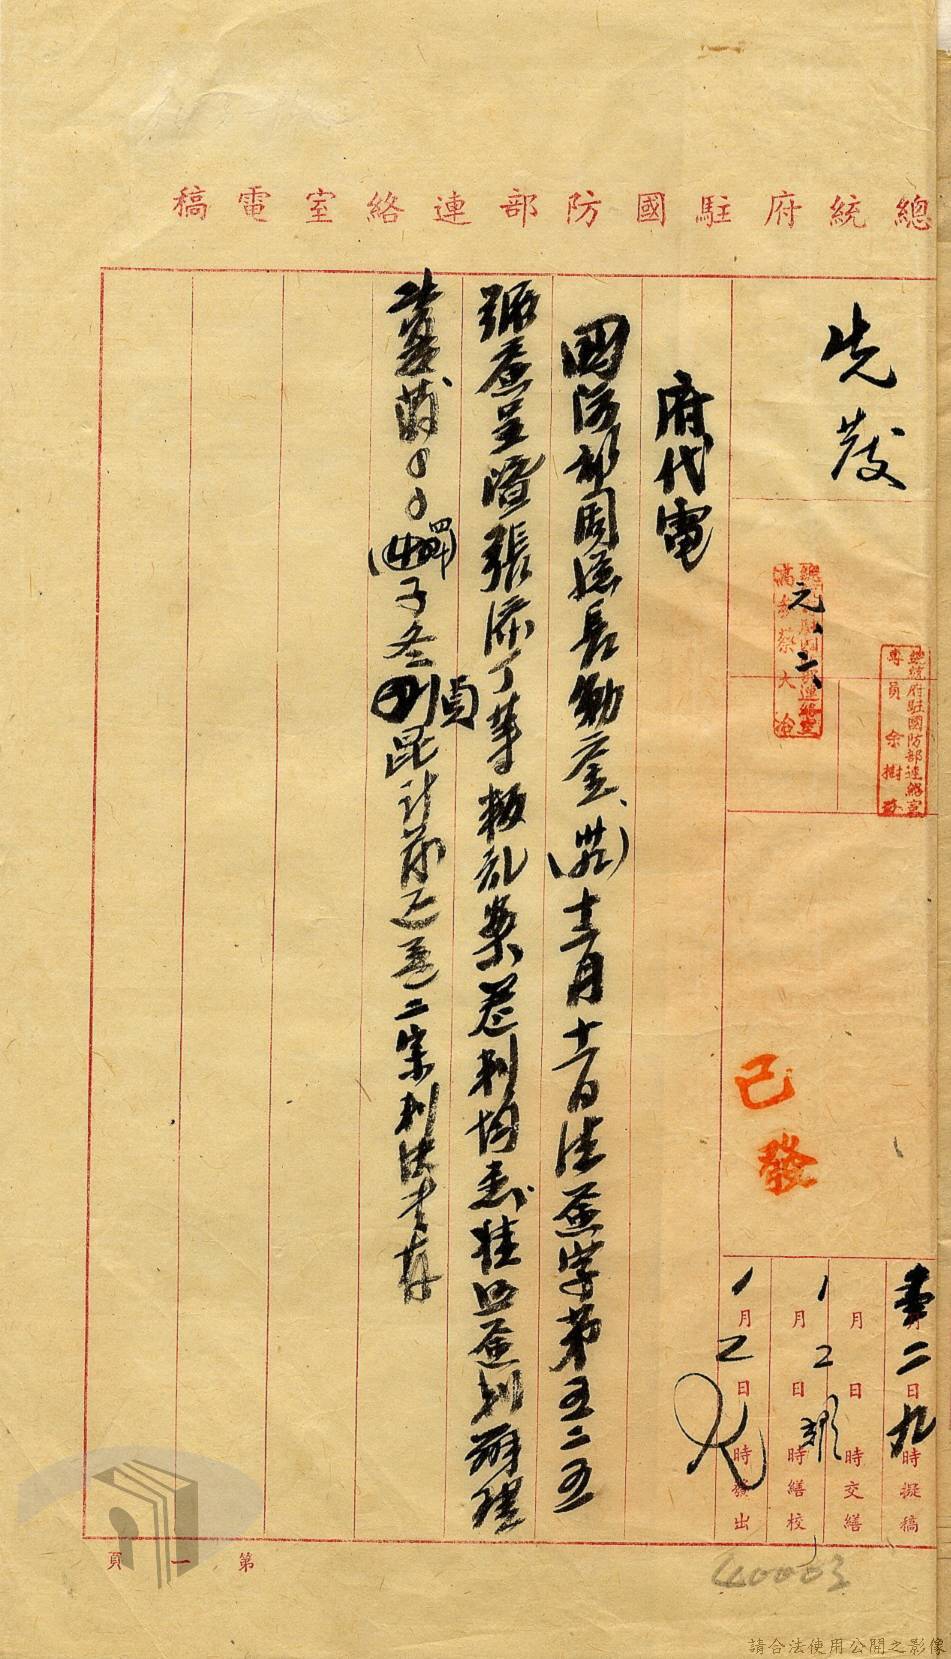 總統府駐國防部連絡室電稿
先發
元、二、
總統府駐國防部連絡室
高參蔡大治
總統府駐國防部連絡室
專員余樹
已發
壹月二日九時擬稿
月日時交繕
1月2日時繕校
1月2日時發出
府代電
國防部周總長勛鑒、(卅九)十二月十二日法簽字第五二五
號簽呈暨張添丁等叛亂案卷判均悉准照簽擬辦理
子冬
貞
計發還卷二宗判決書存
第一頁
40003
請合法使用公開之影像